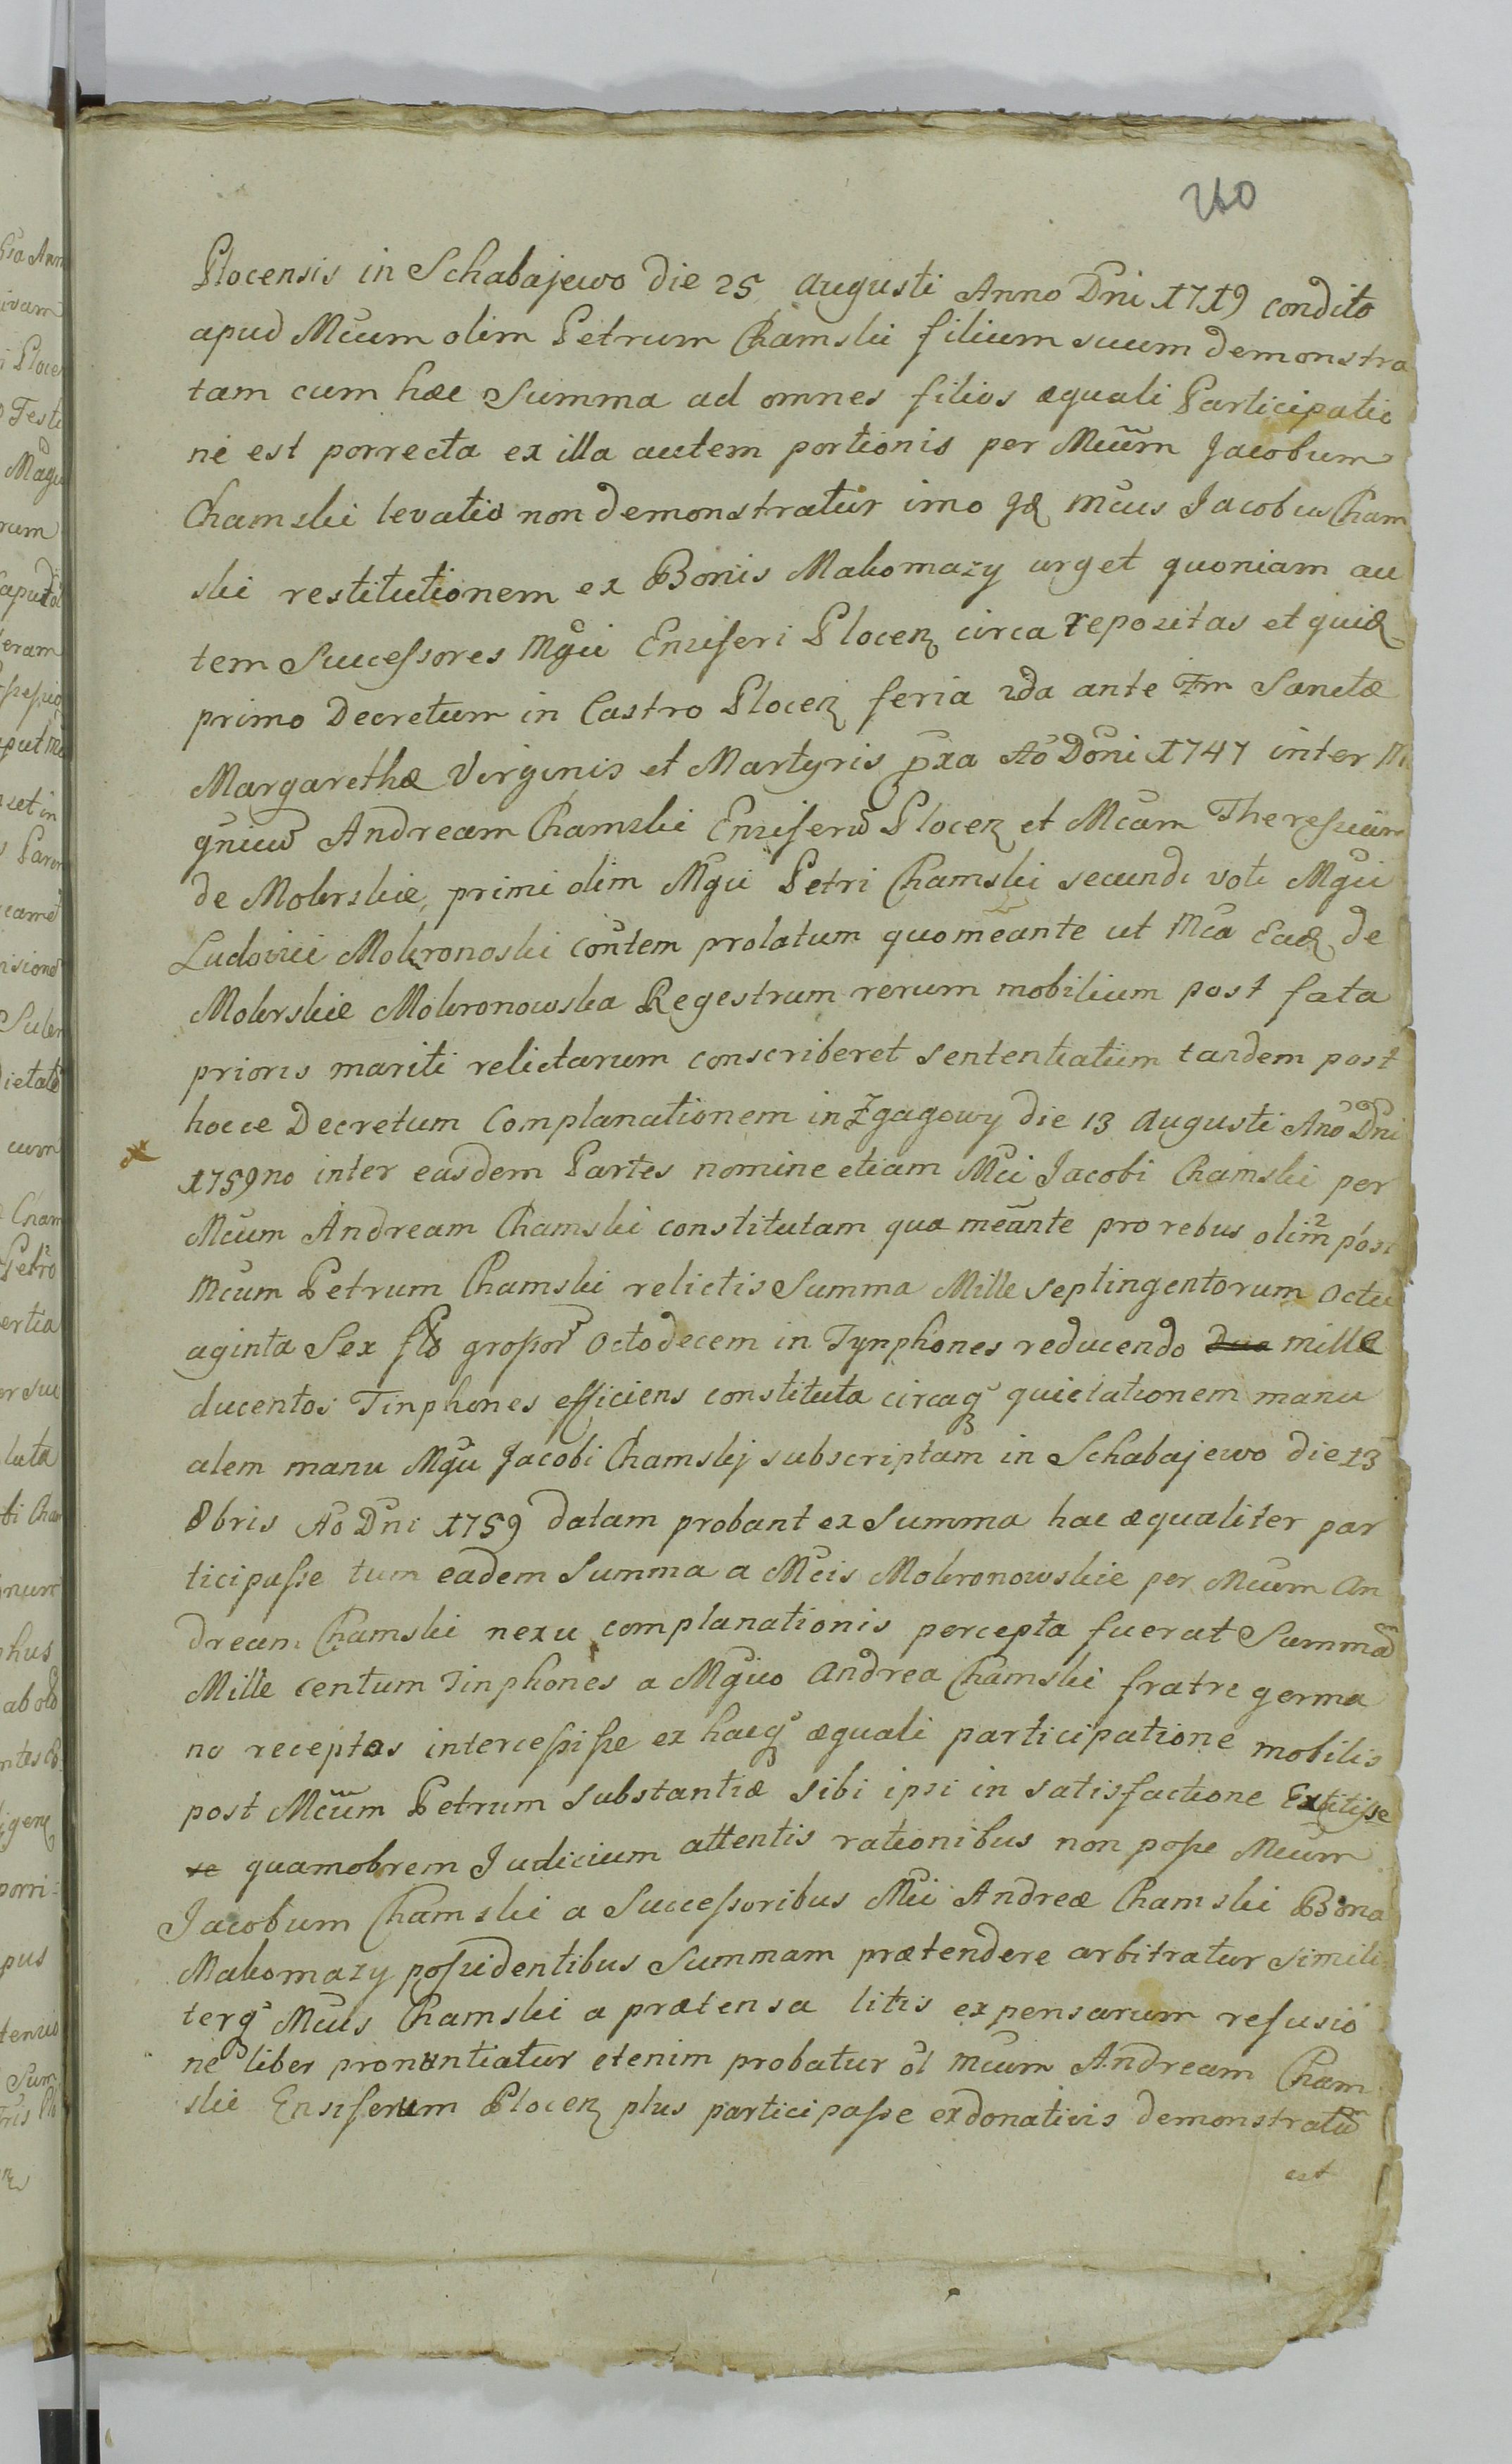 260
Plocensis in Schabajewo die 25 Augusti Anno Dni 1719 condito
apud Mcum olim Petrum Chamski filium suum demonstra
tam cum hac Summa ad omnes filios æquali Participatio
ne est porrecta ex illa autem portionis per Mcum Jacobum
Chamski levatio non demonstratur imo Mcus Jacobus Cham
ski restitutionem ex Bonis Makomazy urget quoniam au
tem Successores Mgci Ensiferi Plocen circa repositas et quid
primo Decretum in Castro Plocen feria 2da ante Sanctæ
Margarethæ Virginis et Martyris pxa Ao Doni 1747 inter M
gnicu Andream Chamski Enziferu Plocen et Mcam Theresiam
de Mokrskie, primi olim Mgci Petri Chamski secundi voti Mgci
Ludovici Mokronoski contem prolatum quo meante ut Mca Ead de
Mokrskie Mokronowska Regestrum rerum mobilium post fata
prioris mariti relictarum conscriberet sententiatum tandem post
hocce Decretum Complanationem in Zgagowy die 13 Augusti Ano Dni
1759no inter easdem Partes nomine etiam Mci Jacobi Chamski per
Mcum Andream Chamski constitutam qua meante pro rebus olim post
Mcum Petrum Chamski relictis Summa Mille Septingentorum Octu
aginta Sex flo grossor Octodecem in Tynphones reducendo Duo mille
ducentos Tinphones efficiens constituta circaq quietationem manu
alem manu Mgci Jacobi Chamskj subscriptam in Schabajewo die 13
8bris Ao Dni 1759 datam probant ex Summa hac æqualiter par
ticipasse tum eadem Summa a Mcis Mokronowskie per Mcum An
dream Chamski nexu complanationis percepta fuerat Summa
Mille centum Tinphones a Mgcuo Andrea Chamski fratre germa
no receptos intercessisse ex hacq æquali participatione mobilis
post Mcum Petrum substantiæ sibi ipsi in satisfactione Extitisse
se quamobrem Judicium attentis rationibus non posse Mcum
Jacobum Chamski a Successoribus Mci Andreæ Chamski Bona
Makomazy possidentibus Summam prætendere arbitratur simili
terq Mcus Chamski a prætensa litis expensarum refusio
ne liber pronuntiatur etenim probatur ol Mcum Andream Cham
ski Ensiferum Plocen plus participasse ex donativis demonstratu
est